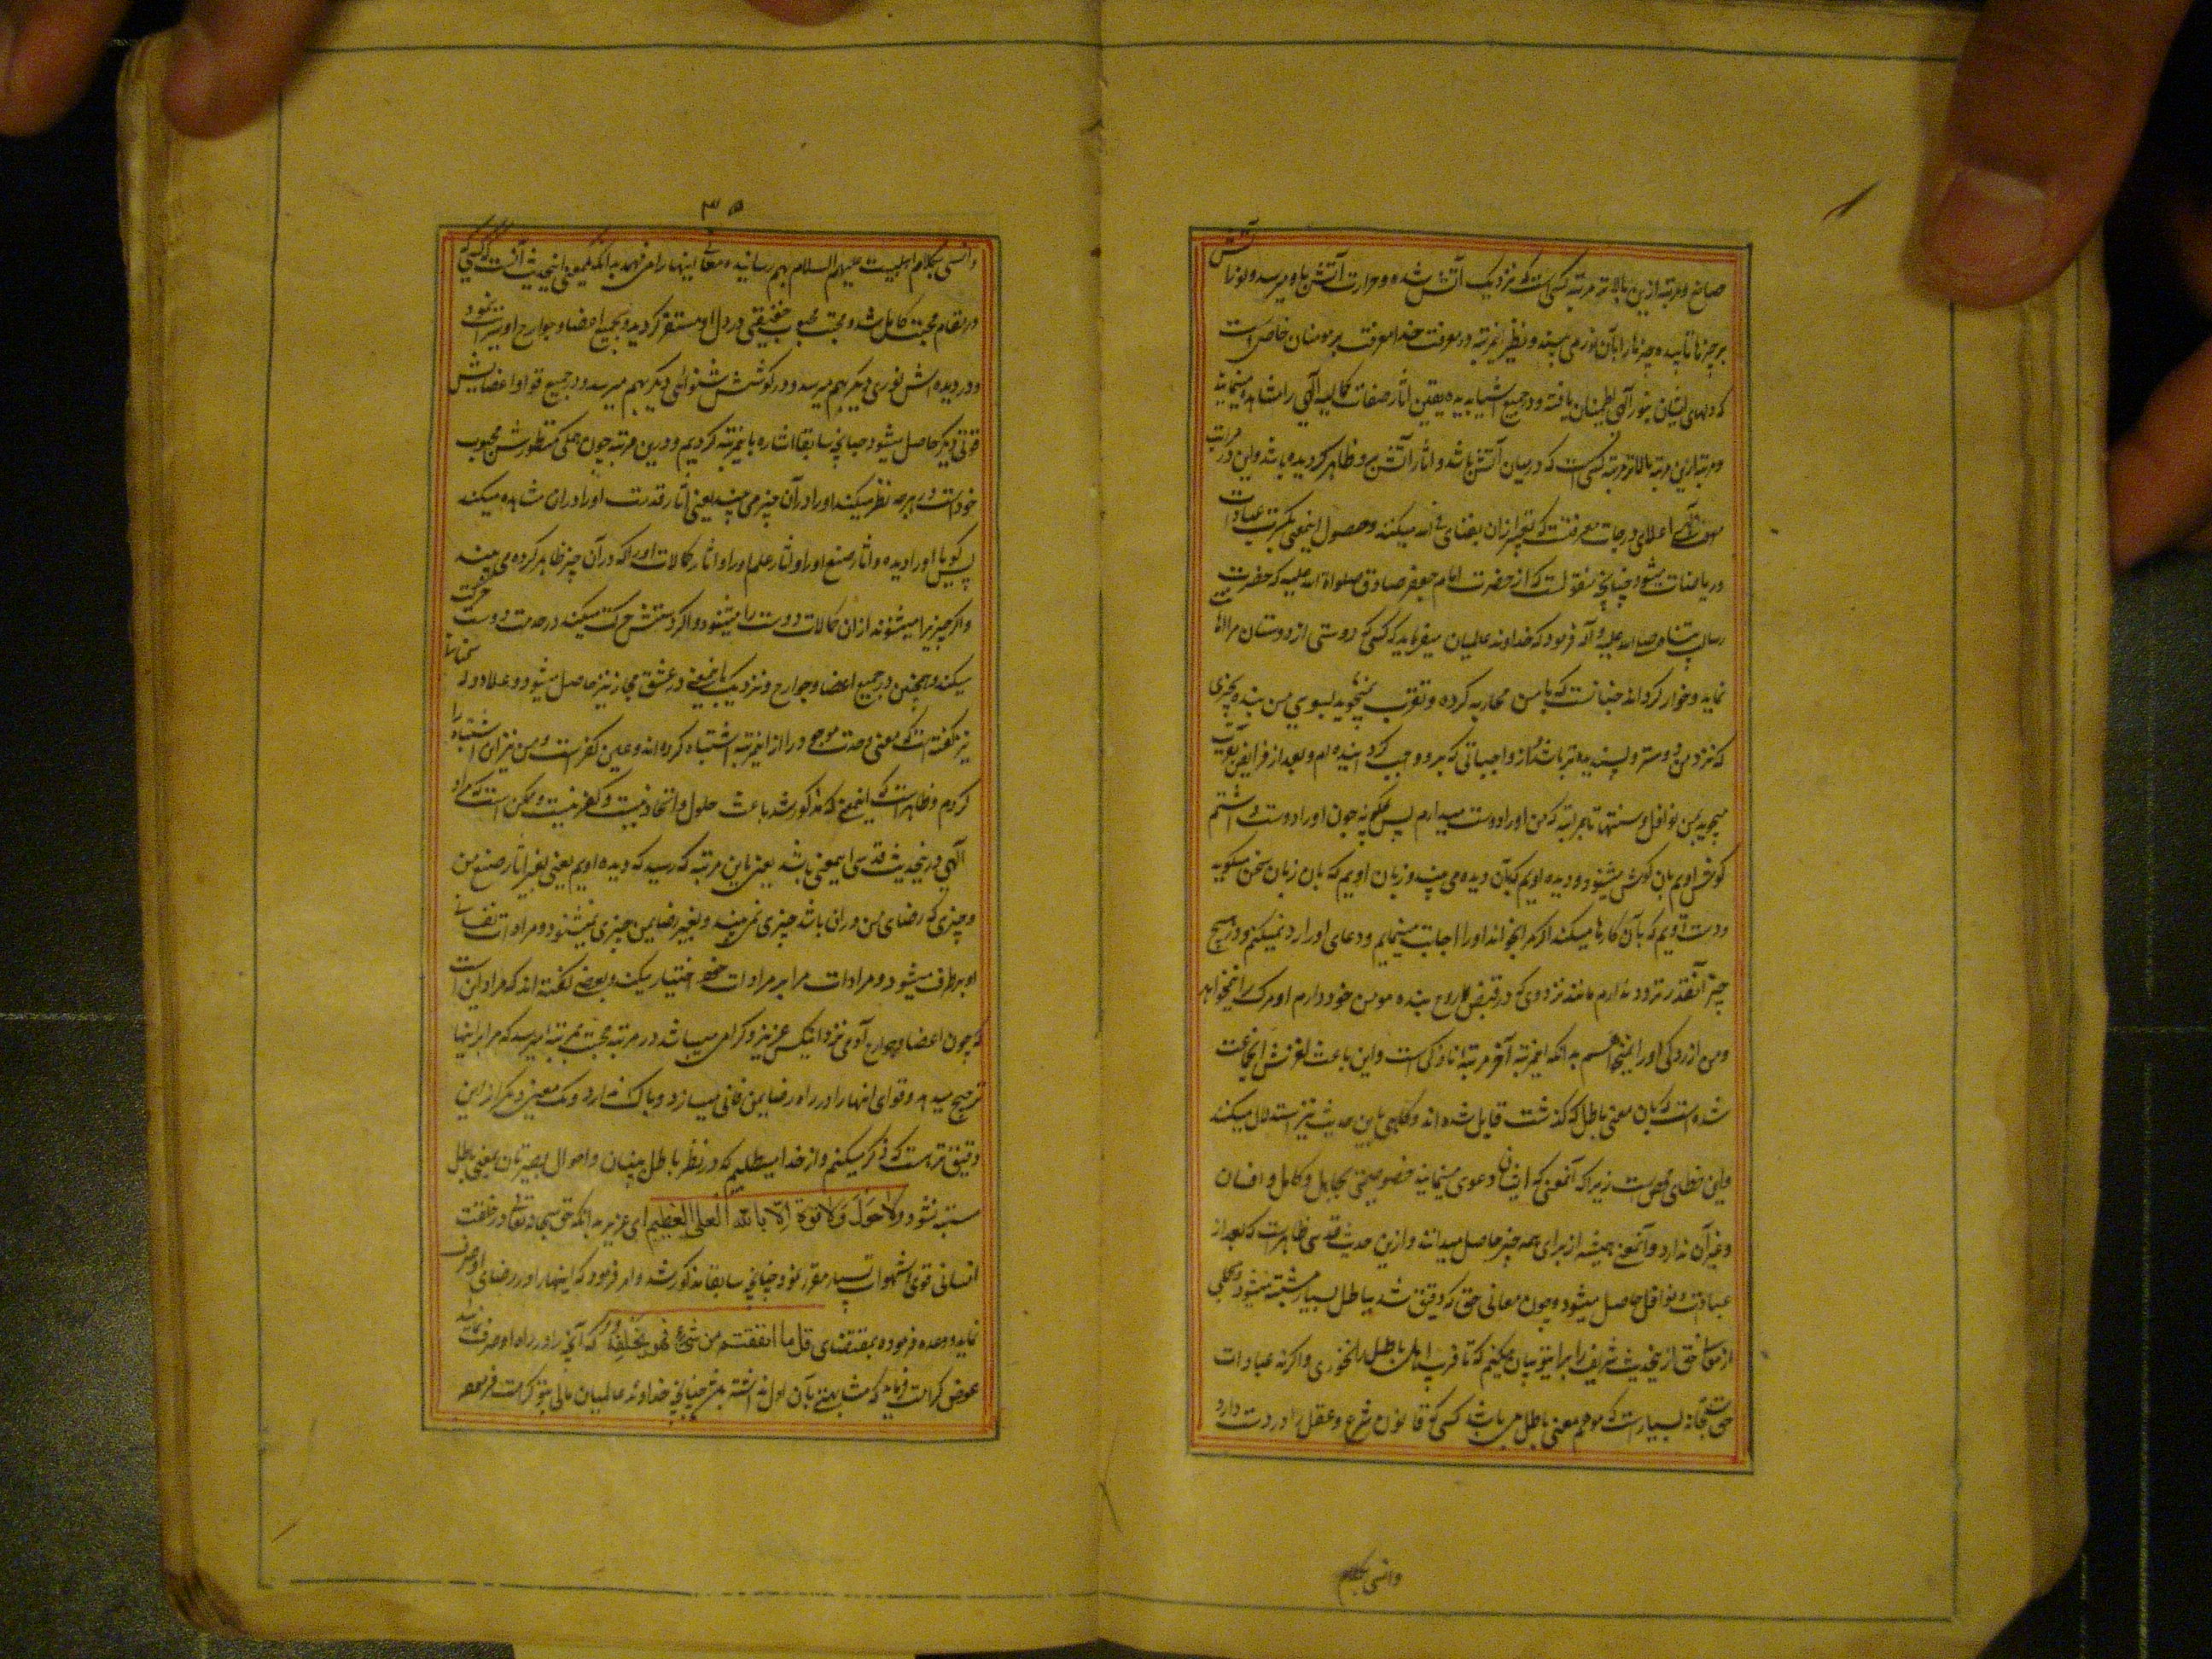 صانع و مرتبه ازین بالاتر مرتبه کسی است که نزدیک آتش شده و حرارت آتش باو میرسد و بنور آتش
بر چیزها تابیده چیزها را بآن نور می بیند و نظیر اینمرتبه در معرفت خدا معرفت بر مومنان خاص است
که دلهای ایشان بنور الهی اطمینان یافته و در جمیع اشیا بدیده یقین آثار صفات کمالیه الهی را مشاهده مینمایند
و مرتبه ازین مرتبه بالاتر مرتبه کسی است که در میان آتش باشد و آثار آتش برو ظاهر گردیده باشد و این در مراتب
معرفت الهی اعلای درجات معرفتست که تعبیر از آن بفنای فی الله میکنند و حصول اینمعنی بکثرت عبادات
و ریاضات میشود چنانچه منقولست که از حضرت امام جعفر صادق صلواة الله علیه که حضرت
رسالت پناه صلی الله علیه و آله فرمود که خداوند عالمیان میفرماید که کسی که دوستی از دوستان مرا اهانت
نماید و خوار گرداند چنانست که با من محاربه کرده و تقرب نمیجوید بسوی من بنده بچیزی
که نزد من دوستر و پسندیده تر باشد از واجباتی که برو واجب گردانیده ام و بعد از فرایض تقرب
میجوید بمن بنوافل و سنتها تا بمرتبه که من او را دوست میدارم پس هرگاه چون او را دوست داشتم
گوش اویم بان گوش میشنود و دیده اویم که بآن دیده می بیند و زبان اویم که بان زبان سخن میگوید
و دست اویم که بآن کارها میکند اگر مرا بخواند او را اجابت مینمایم و دعای او را رد نمیکنم و در هیچ
چیز آنقدر تردد ندارم مانند ترددی که در قبض روح بنده مومن خود دارم او مرگ را نمیخواهد
و من آزردگی او را نمیخواهم بدانکه اینمرتبه آخر مرتبه نازکی است و این باعث لغزش جماعت
شده است که بان معنی باطل که گذشت قایل شده اند و گاهی باین حدیث نیز استدلال میکنند
و این خطای محض است زیرا که آنمعنی که ایشان دعوی مینمایند خصوصیتی بجاهل و کامل و انسان
و غیر آن ندارد و آنمعنی همیشه از برای همه چیز حاصل میدانند و ازین حدیث قدسی ظاهرست که بعد از
عبادت و نوافل حاصل میشود و چون معانی حق که دقیق شد بباطل بسیار مشتبه میشود
از معانی حق ازین حدیث شریف را برای تو بیان میکنم که تا فریب اهل باطل را نخوری و اگر نه عبارات
حق سبحانه بسیارست که موهم معنی باطل می باشد کسی که قانون شرع و عقل را در دست دارد
وانسی بکلام
۳۵
وانسی بکلام اهلبیت علیهم السلام بهم رسانیده معانی اینها را می فهمد بدانکه یکمعنی اینحدیث آنست که کسی که
در مقام محبت کامل شد و محبت محبوب حقیقی در دل او مستقر گردید و بجمیع اعضا و جوارح او سرایت نمود
و در دیده اش نوری دیگر بهم میرسد و در گوشش شنوائی دیگر بهم میرسد و در جمیع قوا و اعضایش
قوتی دیگر حاصل میشود چنانچه سابقا اشاره باینمرتبه کردیم و درین مرتبه چون همگی منظورش محبوب
خود است در هرچه نظر میکند او را در آن چیز می بیند یعنی آثار قدرت او را در ان مشاهده میکند
پس گویا او را دیده و آثار صنع او را و آثار علم او را و آثار کمالات او را که در آن چیز ظاهر کرده می بیند
و اگر چیزیرا میشنود از ان کمالات دوست را میشنود و اگر دستش حرکت میکند در خدمت دوست حرکت
میکند و همچنین در جمیع اعضا و جوارح و نزدیک باینمعنی در عشق مجاز نیز حاصل میشود و علاء دوله سمنانی
نیز گفته است که معنی وحدت موجود را از اینمرتبه اشتباه کرده اند و عین کفرست و من نیز این اشتباه را
کردم و ظاهر است که اینمعنی که مذکور شد باعث حلول و اتحاد نیست و کفر نیست و ممکن است که مراد
الهی درینحدیث قدسی اینمعنی باشد یعنی باین مرتبه که رسید که دیده اویم یعنی بغیر آثار صنع من
و چیزی که رضای من در ان باشد چیزی نمی بیند و بغیر رضای من چیزی نمیشنود و مرادات نفسانی
او برطرف میشود و مرادات مرا بر مرادات خود اختیار میکند و بعضی گفته اند که مراد این است
که چون اعضا و جوارح آدمی نزد اینکس عزیز و گرامی میباشد در مرتبه محبت بمرتبه میرسد که مرا بر اینها
ترجیح میدهد و قوای اینها را در راه رضای من فانی میسازد و باک ندارد و یک معنی دیگر از این
دقیق ترست که ذکر میکنم و از خدا میطلبیم که در نظر باطل بینان و احوال بصیرتان بمعنی باطل
مشتبه نشود و لا حَولَ وَلا قوة اِلّا باللهِ العلی العظیم ای عزیز بدانکه حق سبحانه تعالی در خلقت
انسانی قوی و شهوات بسیار مقرر نمود چنانچه سابقا مذکور شد و امر فرمود که اینها را در رضای او صرف
نماید و وعده فرموده بمقتضای قل ما انفقتم من شیءٍ فهو یُخلِفه که آنچه را در راه او صرف نمایند
عوض کرامت فرماید که مشابهتی بآن اول نداشته باشد چنانچه خداوند عالمیان مالی بتو کرامت فرموده